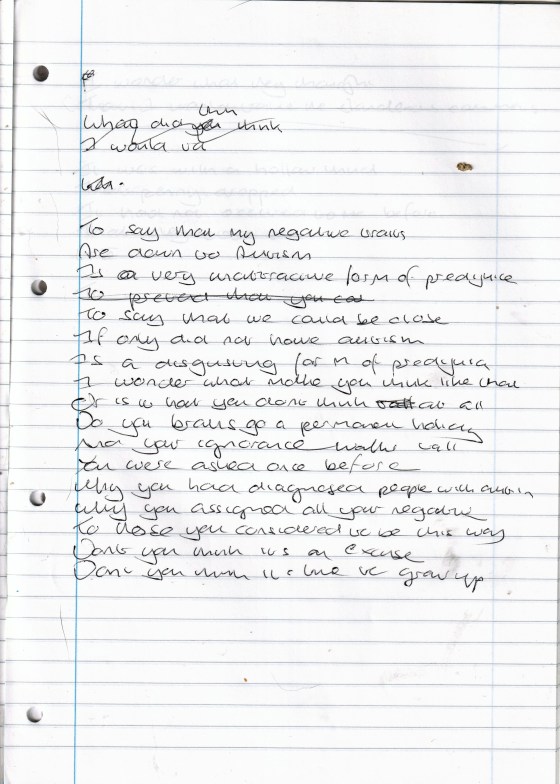 What did you think
I would
To say that my negative traits
Are down to Autism
Is a very unattractive form of predjuice
To prevent that you can
To say that we could be close
If only did not have autism
Is a disgusting form of predjuice
I wonder what make you think like that
Or is it that you dont think at all
Do you brains go a permanent holiday
And your ignorance walks tall
You were asked once before
Why you had diagnosed people with autism
Why you assigned all your negative
To those you considered to be this way
Dont you think its an excuse
Dont you think its time to grow up